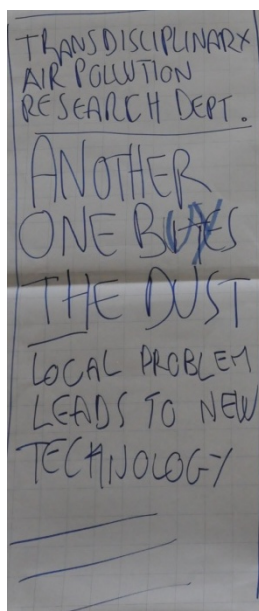 TRANSDISCIPLINARY
AIR POLLUTION
RESEARCH DEPT.
ANOTHER
ONE BUYS
THE DUST
LOCAL PROBLEM
LEADS TO NEW
TECHNOLOGY